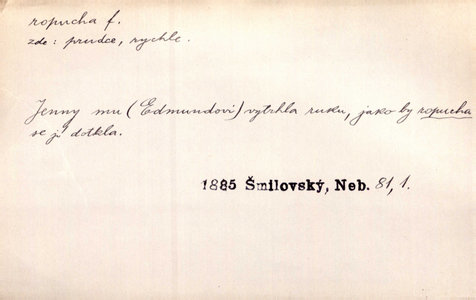 ropucha f.
zde: prudce, rychle.
Jenny mu (Edmundovi) vytrhla ruku, jako by ropucha
se jí dotkla.
1885 Šmilovský, Neb. 81, 1.